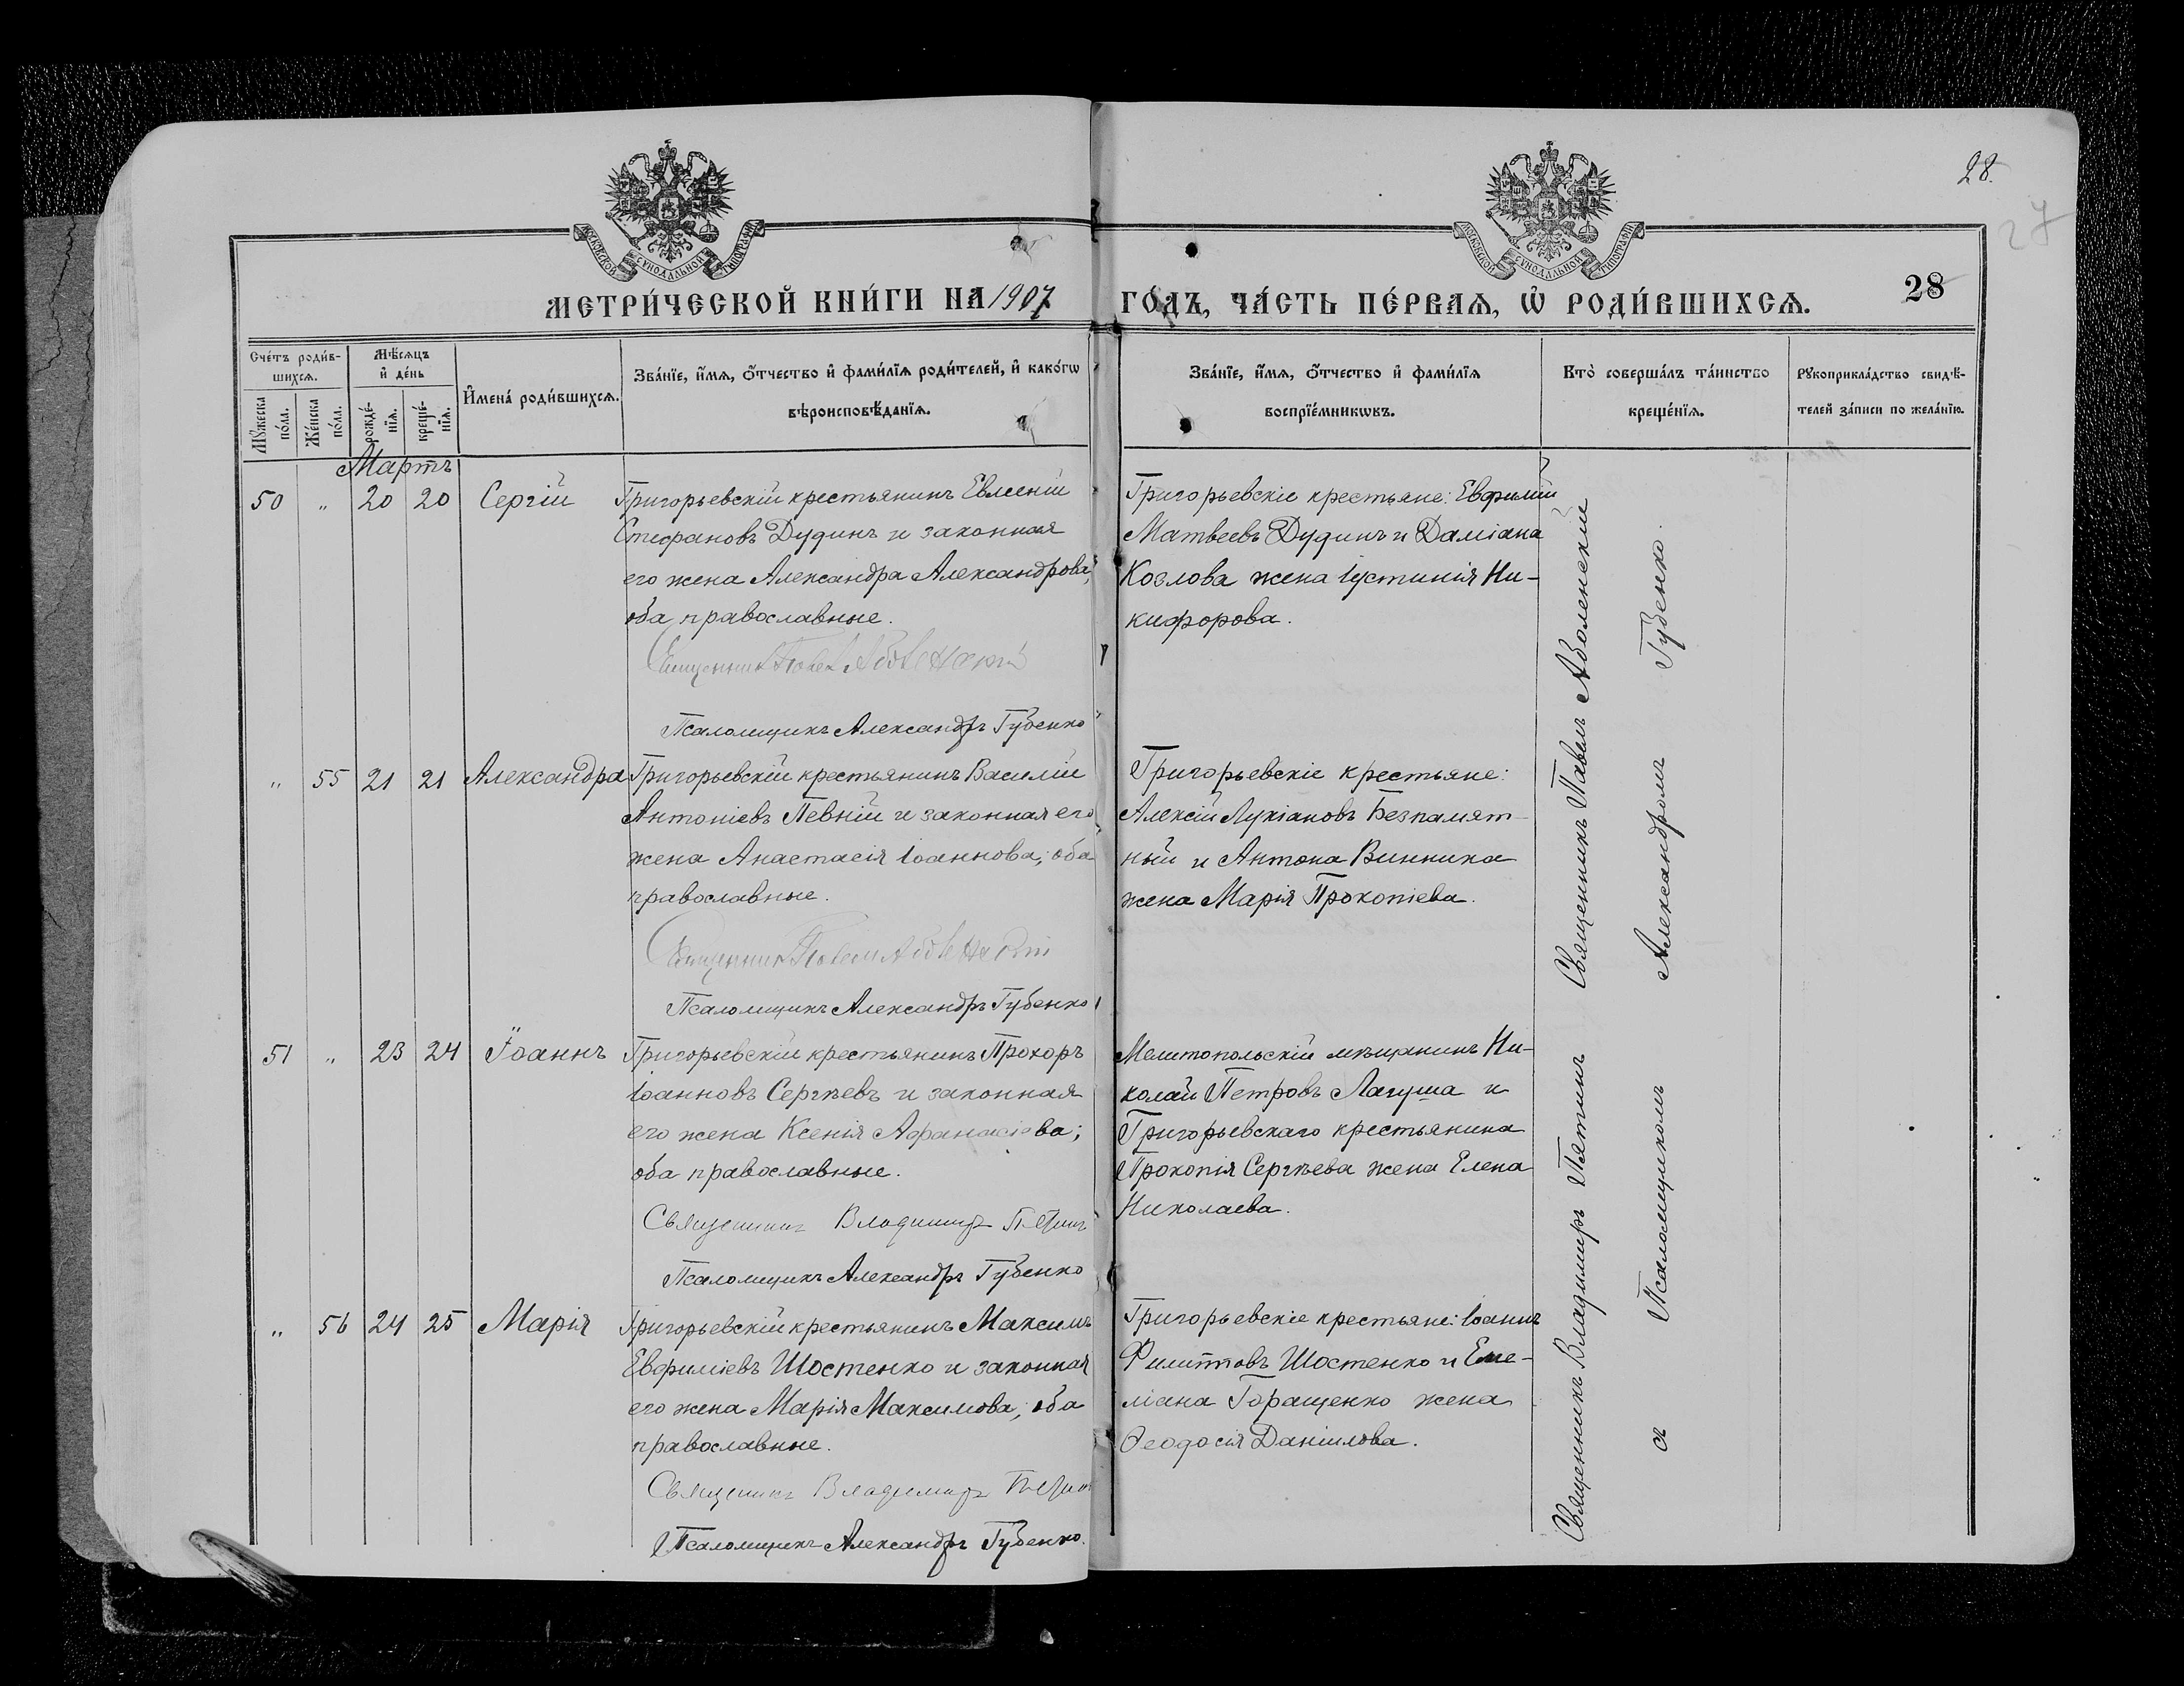 28.
27
МОСКОВСКОЙ СѴНОДАЛЬНОЙ ТИПОГРАФІИ
МОСКОВСКОЙ СѴНОДАЛЬНОЙ ТИПОГРАФІИ
МЕТРИ́ЧЕСКОЙ КНИ́ГИ НА 1907 ГО́ДЪ, ЧА́СТЬ ПЕ́РВАѦ, Ѡ҆ РОДИ́ВШИХСѦ.
28
Сче́тъ роди́в-
шихсѧ.
Мѣ́сѧцъ
и҆ де́нь
Мꙋ́жеска
по́ла.
Же́нска
по́ла.
рожде́-
нїѧ.
креще́-
нїѧ.
И҆мена̀ роди́вшихсѧ.
Зва́нїе, и҆́мѧ, ѻ҆́тчество и҆ фами́лїѧ роди́телей, и҆ како́гѡ
вѣроисповѣ́данїѧ.
Зва́нїе, и҆́мѧ, ѻ҆́тчество и҆ фами́лїѧ
воспрїе́мникѡвъ.
Кто̀ соверша́лъ та́инство
креще́нїѧ.
Рꙋкоприкла́дство свидѣ́-
телей за́писи по жела́нїю.
Мартъ
50 " 20 20 Сергій
Григорьевскій крестьянинъ Евсеній
Стефановъ Дудинъ и законная
его жена Александра Александрова,
оба православные.
Священникъ Павелъ Аболенскій
Псаломщикъ Александръ Губенко
Григорьевскіе крестьяне: Евфимій
Матвеевъ Дудинъ и Даміана
Козлова жена Іустинія Ни-
кифорова.
" 55 21 21 Александра
Григорьевскій крестьянинъ Василій
Антоніевъ Певній и законная его
жена Анастасія Іоаннова; оба
православные.
Священникъ Павелъ Аболенскій
Псаломщикъ Александръ Губенко
Григорьевскіе крестьяне:
Алексій Лукіановъ Безпамят-
ный и Антона Винника
жена Марія Прокопіева.
51 " 23 24 Іоаннъ
Григорьевскій крестьянинъ Прохоръ
Іоанновъ Сергѣевъ и законная
его жена Ксенія Афанасіева;
оба православные.
Священникъ Владимиръ Пятинъ
Псаломщикъ Александръ Губенко
Мелитопольскій мѣщанинъ Ни-
колай Петровъ Лагуша и
Григорьевскаго крестьянина
Прокопія Сергѣева жена Елена
Николаева.
" 56 24 25 Марія
Григорьевскій крестьянинъ Максимъ
Евфиміевъ Шостенко и законная
его жена Марія Максимова; оба
православные.
Священникъ Владимиръ Пятинъ
Псаломщикъ Александръ Губенко.
Григорьевскіе крестьяне: Іоаннъ
Филипповъ Шостенко и Еме-
ліана Горащенко жена
Ѳеодосія Даніилова.
Священникъ Владимиръ Пятинъ Священникъ Павелъ Аболенскій
съ Псаломщикомъ Александромъ Губенко.